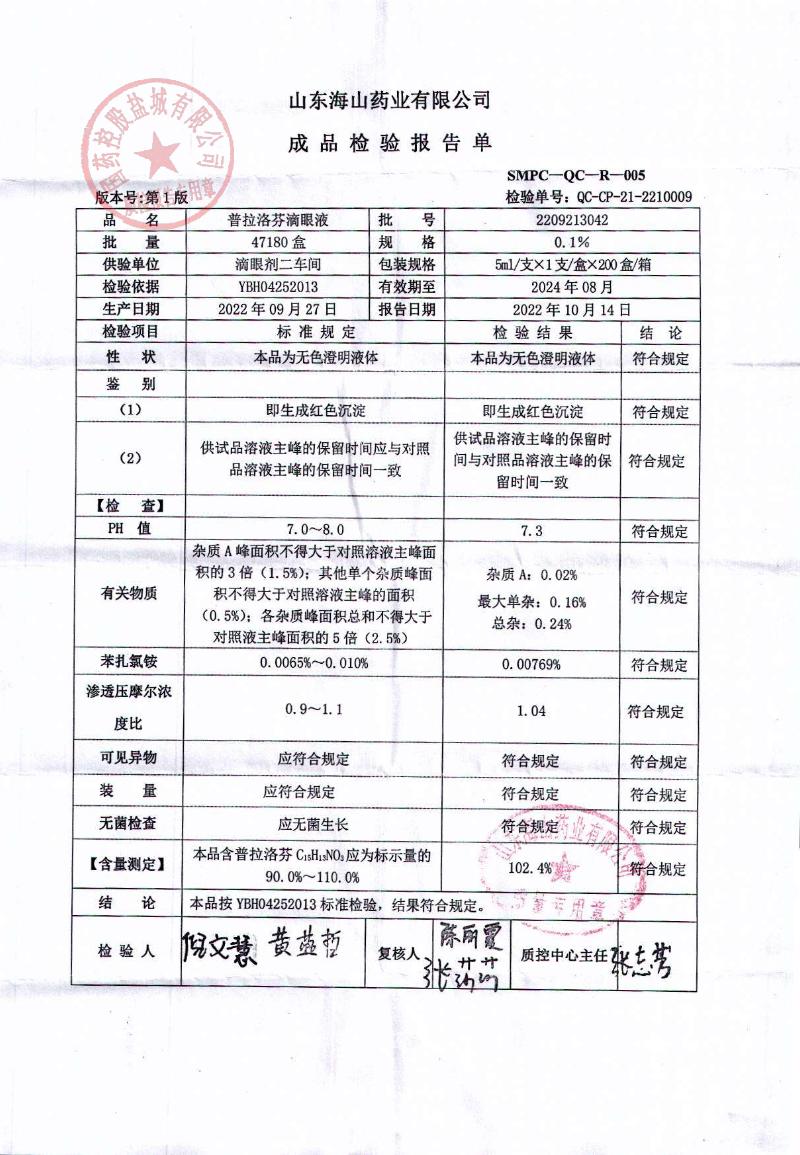 山东海山药业有限公司
成品检验报告单
SMPC—QC—R—005
版本号:第1版 检验单号：QC-CP-21-2210009
国药控股盐城有限公司
品 名 普拉洛芬滴眼液 批 号 2209213042
批 量 47180盒 规 格 0.1%
供验单位 滴眼剂二车间 包装规格 5ml/支×1支/盒×200盒/箱
检验依据 YBH04252013 有效期至 2024年08月
生产日期 2022年09月27日 报告日期 2022年10月14日
检验项目 标准规定 检验结果 结论
性 状 本品为无色澄明液体 本品为无色澄明液体 符合规定
鉴 别
（1） 即生成红色沉淀 即生成红色沉淀 符合规定
（2） 供试品溶液主峰的保留时间应与对照
品溶液主峰的保留时间一致
供试品溶液主峰的保留时
间与对照品溶液主峰的保
留时间一致
符合规定
【检 查】
PH 值 7.0～8.0 7.3 符合规定
有关物质
杂质A峰面积不得大于对照溶液主峰面
积的3倍（1.5%）；其他单个杂质峰面
积不得大于对照溶液主峰的面积
（0.5%）；各杂质峰面积总和不得大于
对照液主峰面积的5倍（2.5%）
杂质A：0.02%
最大单杂：0.16%
总杂：0.24%
符合规定
苯扎氯铵 0.0065%～0.010% 0.00769% 符合规定
渗透压摩尔浓
度比
0.9～1.1 1.04 符合规定
可见异物 应符合规定 符合规定 符合规定
装 量 应符合规定 符合规定 符合规定
无菌检查 应无菌生长 符合规定 符合规定
【含量测定】 本品含普拉洛芬C₁₅H₁₃NO₃应为标示量的
90.0%～110.0%
102.4% 符合规定
山东海山药业有限公司
结 论 本品按YBH04252013标准检验，结果符合规定。
检验人 倪文慧 黄蓝哲 复核人 陈丽霞 质控中心主任